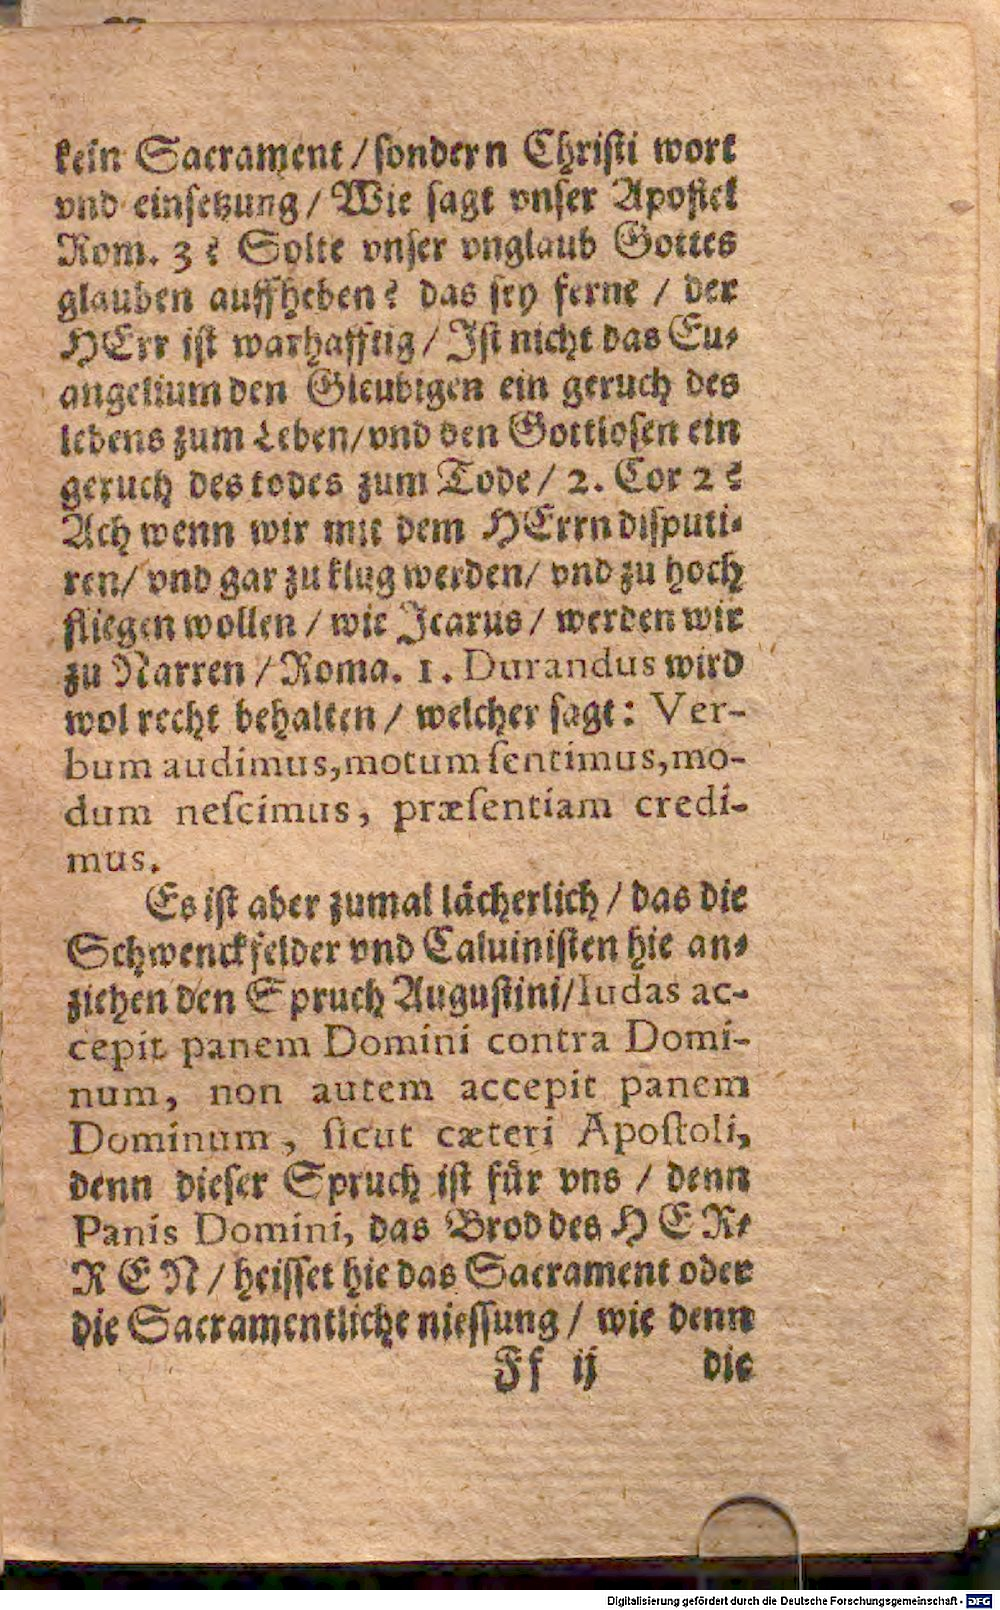 kein Sacrament / sondern Christi wort
vnd einsetzung / Wie sagt vnser Apostel
Rom. 3? Solte vnser vnglaub Gottes
glauben auffheben? das sey ferne / der
HErr ist warhafftig / Ist nicht das Eu-
angelium den Gleubigen ein geruch des
lebens zum Leben / vnd den Gottlosen ein
geruch des todes zum Tode / 2. Cor 2?
Ach wenn wir mit dem HErrn disputi-
ren / vnd gar zu klug werden / vnd zu hoch
fliegen wollen / wie Icarus / werden wir
zu Narren / Roma. 1. Durandus wird
wol recht behalten / welcher sagt: Ver-
bum audimus, motum ſentimus, mo-
dum neſcimus, præſentiam credi-
mus.
Es ist aber zumal lächerlich / das die
Schwenckfelder vnd Caluinisten hie an-
ziehen den Spruch Augustini / Iudas ac-
cepit panem Domini contra Domi-
num, non autem accepit panem
Dominum, ſicut cæteri Apoſtoli,
denn dieser Spruch ist für vns / denn
Panis Domini, das Brod des HER-
REN / heisset hie das Sacrament oder
die Sacramentliche niessung / wie denn
Ff ij die
Digitalisierung gefördert durch die Deutsche Forschungsgemeinschaft - DFG